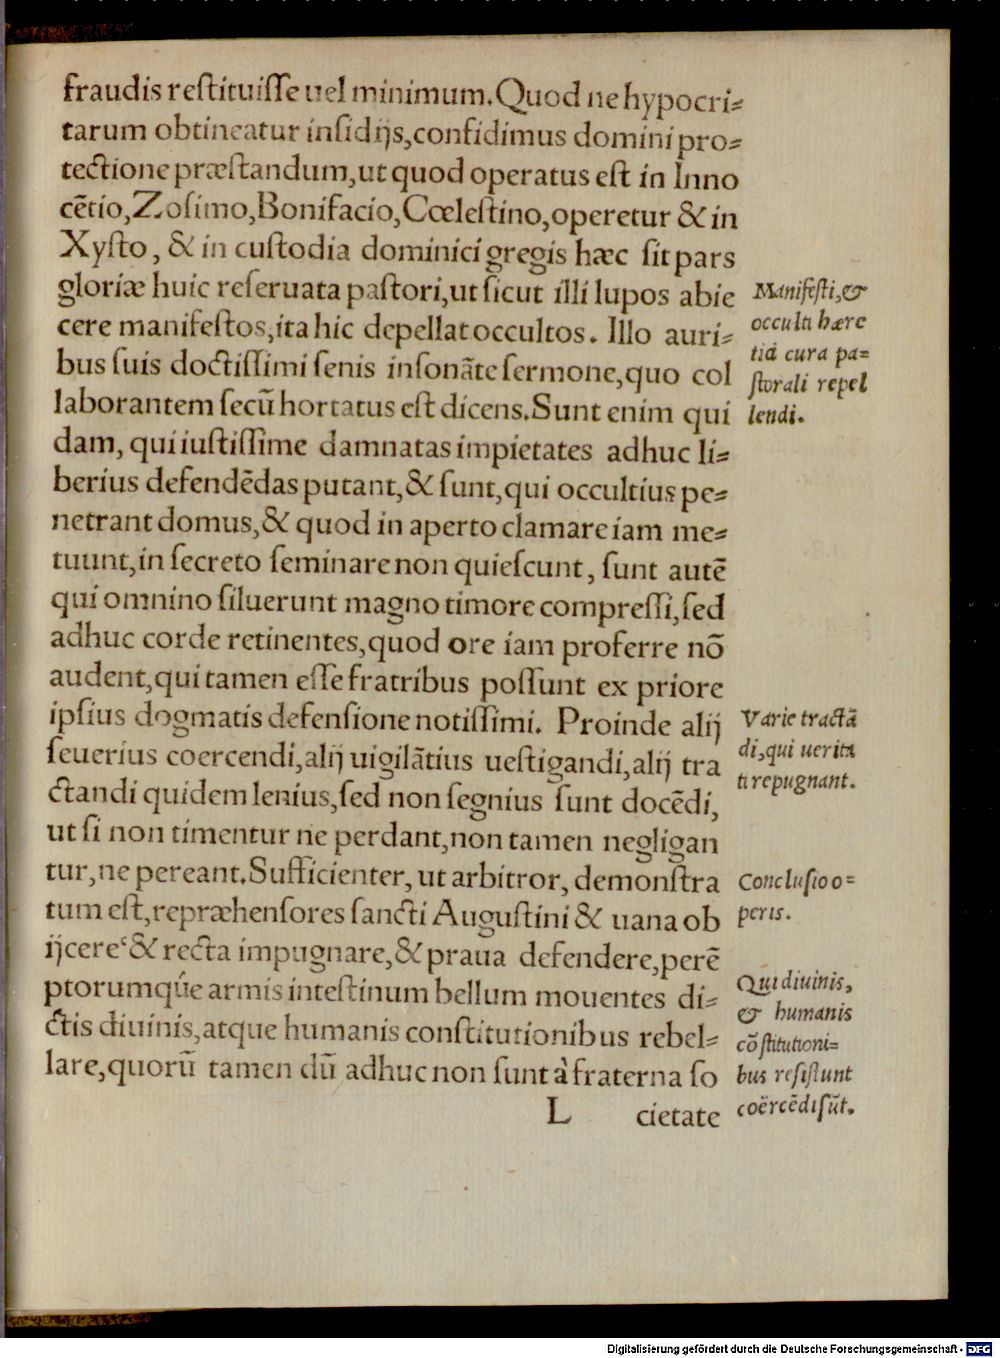 fraudis reſtituiſſe uel minimum. Quod ne hypocri-
tarum obtineatur inſidijs, confidimus domini pro-
tectione præſtandum, ut quod operatus eſt in Inno
cētio, Zoſimo, Bonifacio, Cœleſtino, operetur & in
Xyſto, & in cuſtodia dominici gregis hæc ſit pars
gloriæ huic reſeruata paſtori, ut ſicut illi lupos abie
cere manifeſtos, ita hic depellat occultos. Illo auri-
bus ſuis doctiſſimi ſenis inſonāte ſermone, quo col
laborantem ſecū hortatus eſt dicens. Sunt enim qui
dam, qui iuſtiſſime damnatas impietates adhuc li-
berius defendēdas putant, & ſunt, qui occultius pe-
netrant domus, & quod in aperto clamare iam me-
tuunt, in ſecreto ſeminare non quieſcunt, ſunt autē
qui omnino ſiluerunt magno timore compreſſi, ſed
adhuc corde retinentes, quod ore iam proferre nō
audent, qui tamen eſſe fratribus poſſunt ex priore
ipſius dogmatis defenſione notiſſimi. Proinde alij
ſeuerius coercendi, alij uigilātius ueſtigandi, alij tra
ctandi quidem lenius, ſed non ſegnius ſunt docēdi,
ut ſi non timentur ne perdant, non tamen negligan
tur, ne pereant. Sufficienter, ut arbitror, demonſtra
tum eſt, repræhenſores ſancti Auguſtini & uana ob
ijcere & recta impugnare, & praua defendere, perē
ptorumqúe armis inteſtinum bellum mouentes di-
ctis diuinis, atque humanis conſtitutionibus rebel-
lare, quorū tamen dū adhuc non ſunt à fraterna ſo
L cietate
Manifeſti, &
occulti hære
tici cura pa-
ſtorali repel
lendi.
Varie tractā
di, qui uerita
ti repugnant.
Concluſio o-
peris.
Qui diuinis,
& humanis
cōſtitutioni-
bus reſiſtunt
coërcēdi ſūt.
Digitalisierung gefördert durch die Deutsche Forschungsgemeinschaft - DFG